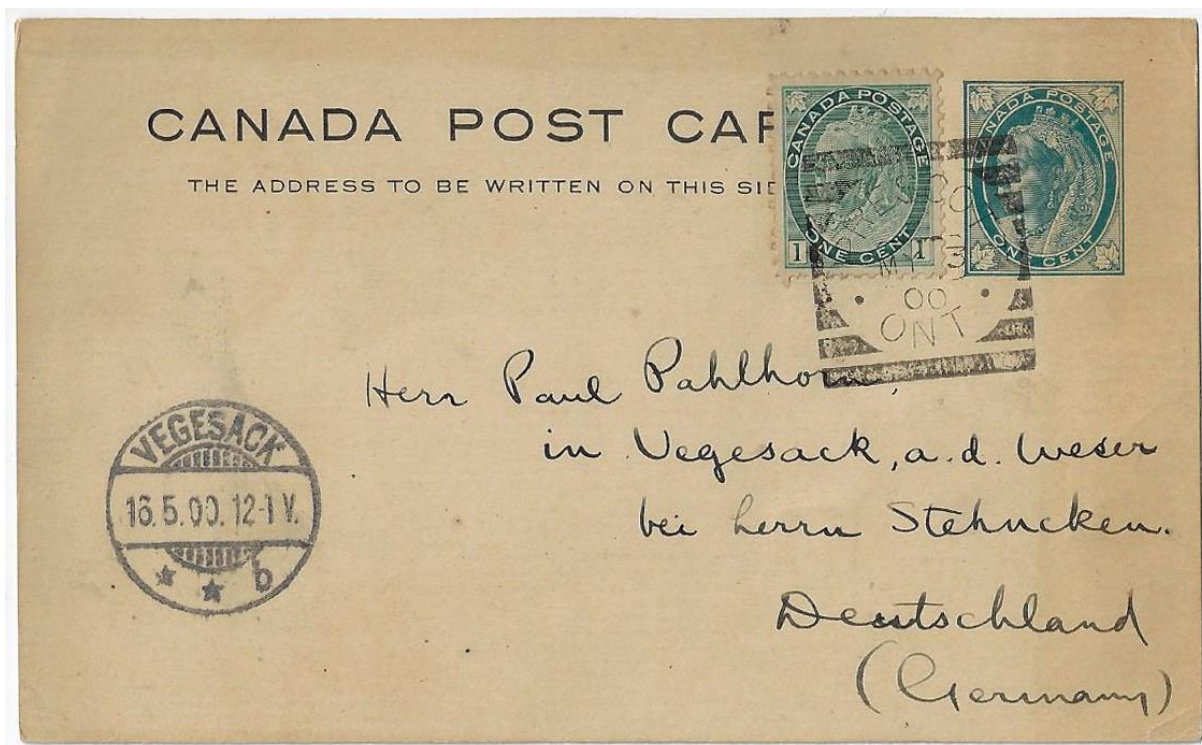 CANADA POST
THE ADDRESS TO BE WRITTEN ON THIS
CANADA POSTAGE
1 ONE CENT 1
CANADA POSTAGE
ONE CENT
00
ONT
Herr Paul Pahlhorn,
in Vegesack, a. d. Weser
bei Herrn Stehncken.
Deutschland
(Germany)
VEGESACK
16.5.00. 12-1 V.
* * b